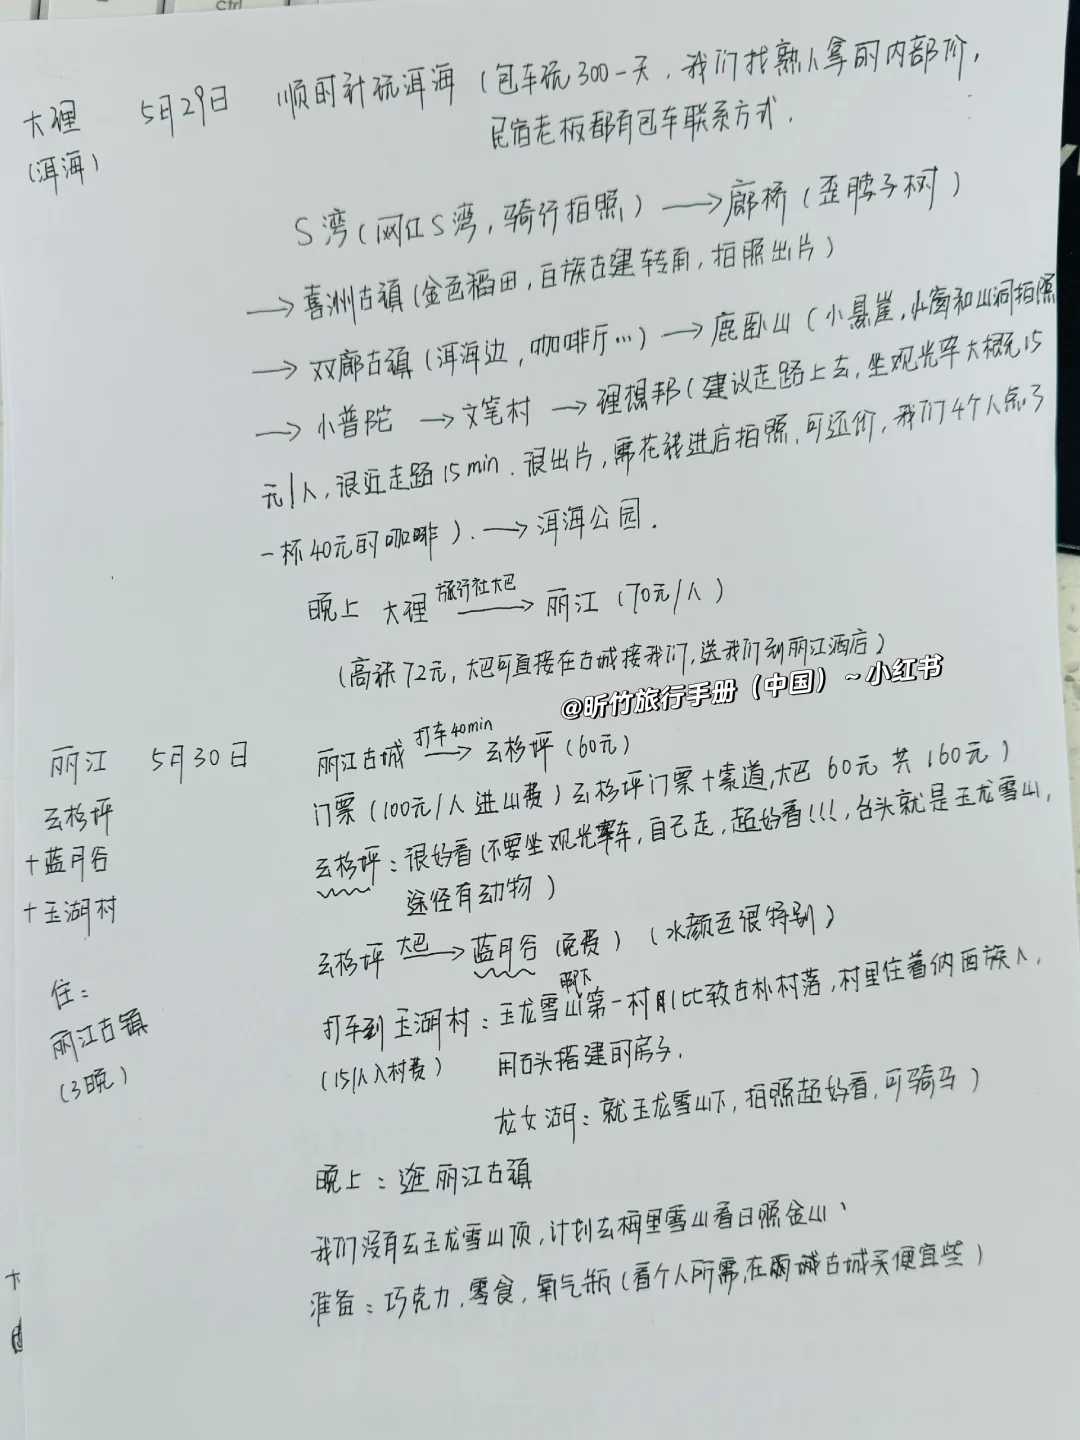 Ctrl
大理 5月29日 顺时针玩洱海（包车玩300一天，我们找熟人拿的内部价，
（洱海） 民宿老板都有包车联系方式.
S湾（网红S湾，骑行拍照）→廊桥（歪脖子树）
→喜洲古镇（金色稻田，白族古建转角，拍照出片）
→双廊古镇（洱海边，咖啡厅…）→鹿卧山（小悬崖，小窗和山洞拍照
→小普陀 →文笔村 →理想邦（建议走路上去，坐观光车大概15
元/人，很近走路15min．很出片，需花钱进店拍照，可还价，我们4个人点了
一杯40元的咖啡）．→洱海公园．
晚上 大理 旅行社大巴→丽江（70元/人）
（高铁72元，大巴可直接在古城接我们，送我们到丽江酒店）
@昕竹旅行手册（中国）~小红书
丽江 5月30日 丽江古城 打车40min→云杉坪（60元）
云杉坪 门票（100元/人 进山费）云杉坪门票+索道，大巴 60元 共160元）
+蓝月谷 云杉坪：很好看（不要坐观光车，自己走，超好看!!!，台头就是玉龙雪山，
+玉湖村 途径有动物）
云杉坪 大巴→蓝月谷（免费）（水颜色很特别）
住： 打车到玉湖村：玉龙雪山脚下第一村 比较古朴村落，村里住着纳西族人，
丽江古镇 （15/人入村费） 用石头搭建的房子．
（3晚） 龙女湖：就玉龙雪山下，拍照超好看，可骑马）
晚上：逛丽江古镇
我们没有去玉龙雪山顶，计划去梅里雪山看日照金山、
准备：巧克力，零食，氧气瓶（看个人所需，在古城买便宜些）